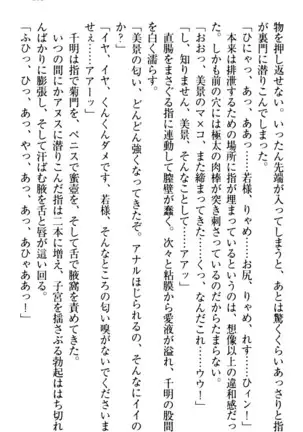 物を押し返せない。いったん先端が入ってしまうと、あとは驚くくらいあっさりと指
が裏門に潜りこんでしまった。
「ひにゃっ、あっ、ああっ……若様、りゃめ……お尻、りゃめ、れす……ひィン！」
本来は排泄するための場所に指が埋まっているというのは、想像以上の違和感だっ
た。しかも前の穴には極太の肉棒が突き刺さっているのだからたまらない。
「おおっ、美景のマンコ、また締まってきた……くっ、なんだこれ……ウウ！」
「し、知りません、美景、そんなことして……アアッ」
直腸をまさぐる指に連動して膣壁が蠢く。次々と粘膜から愛液が溢れ、千明の股間
を白く濡らす。
「美景の匂い、どんどん強くなってきたぞ。アナルほじられるの、そんなにイイの
か？」
「イヤ、イヤ、くんくんダメです、若様、そんなところの匂い嗅がないでくださいま
せぇ……アアーッ」
千明は指で菊門を、ペニスで蜜壺を、そして舌で腋窩を責めてきた。
いつの間にかアヌスに潜りこんだ指は二本に増え、子宮を揺さぶる勃起ははち切れ
んばかりに膨張し、そして汗ばむ腋窩を舌と唇が這い回る。
「ふひっ、ひっ、あっ、やっ、あっ、あっ、あひゃああっ！」